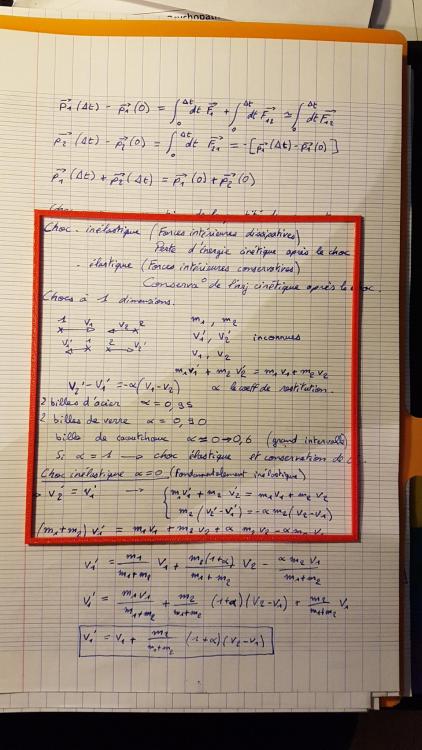 p₁(Δt) - p₁(0) = ∫₀^Δt dt F₁ + ∫₀^Δt dt F₁₂ ≃ ∫₀^Δt dt F₁₂
p₂(Δt) - p₂(0) = ∫₀^Δt dt F₂₁ = -[p₁(Δt) - p₁(0)]
p₁(Δt) + p₂(Δt) = p₁(0) + p₂(0)
Choc - inélastique (Forces intérieures dissipatives)
Perte d'énergie cinétique après le choc
- élastique (Forces intérieures conservatives)
Conserva° de l'nrj cinétique après le choc.
Chocs à 1 dimensions.
1 v₁ v₂ 2 m₁, m₂
v₁' 1 2 v₂' v₁', v₂' inconnues
v₁, v₂
m₁v₁' + m₂ v₂' = m₁v₁ + m₂ v₂
v₂' - v₁' = -α(v₁-v₂) α le coeff de restitution.
2 billes d'acier α = 0,95
2 billes de verre α = 0,90
bille de caoutchouc α ≃ 0 → 0,6 (grand intervalle)
Si α = 1 → choc élastique et conservation de
Choc inélastique α=0 (fondamentalement inélastique)
v₂' = v₁' → { m₁v₁' + m₂ v₂' = m₁v₁ + m₂ v₂
m₂(v₂'-v₁') = -α m₂(v₂-v₁)
(m₁+m₂) v₁' = m₁v₁ + m₂v₂ + α m₂ v₂ - α m₂ v₁
v₁' = m₁/(m₁+m₂) v₁ + m₂(1+α)/(m₁+m₂) v₂ - α m₂ v₁/(m₁+m₂)
v₁' = m₁v₁/(m₁+m₂) + m₂/(m₁+m₂) (1+α)(v₂-v₁) + m₂/(m₁+m₂) v₁
v₁' = v₁ + m₂/(m₁+m₂) (1+α)(v₂-v₁)